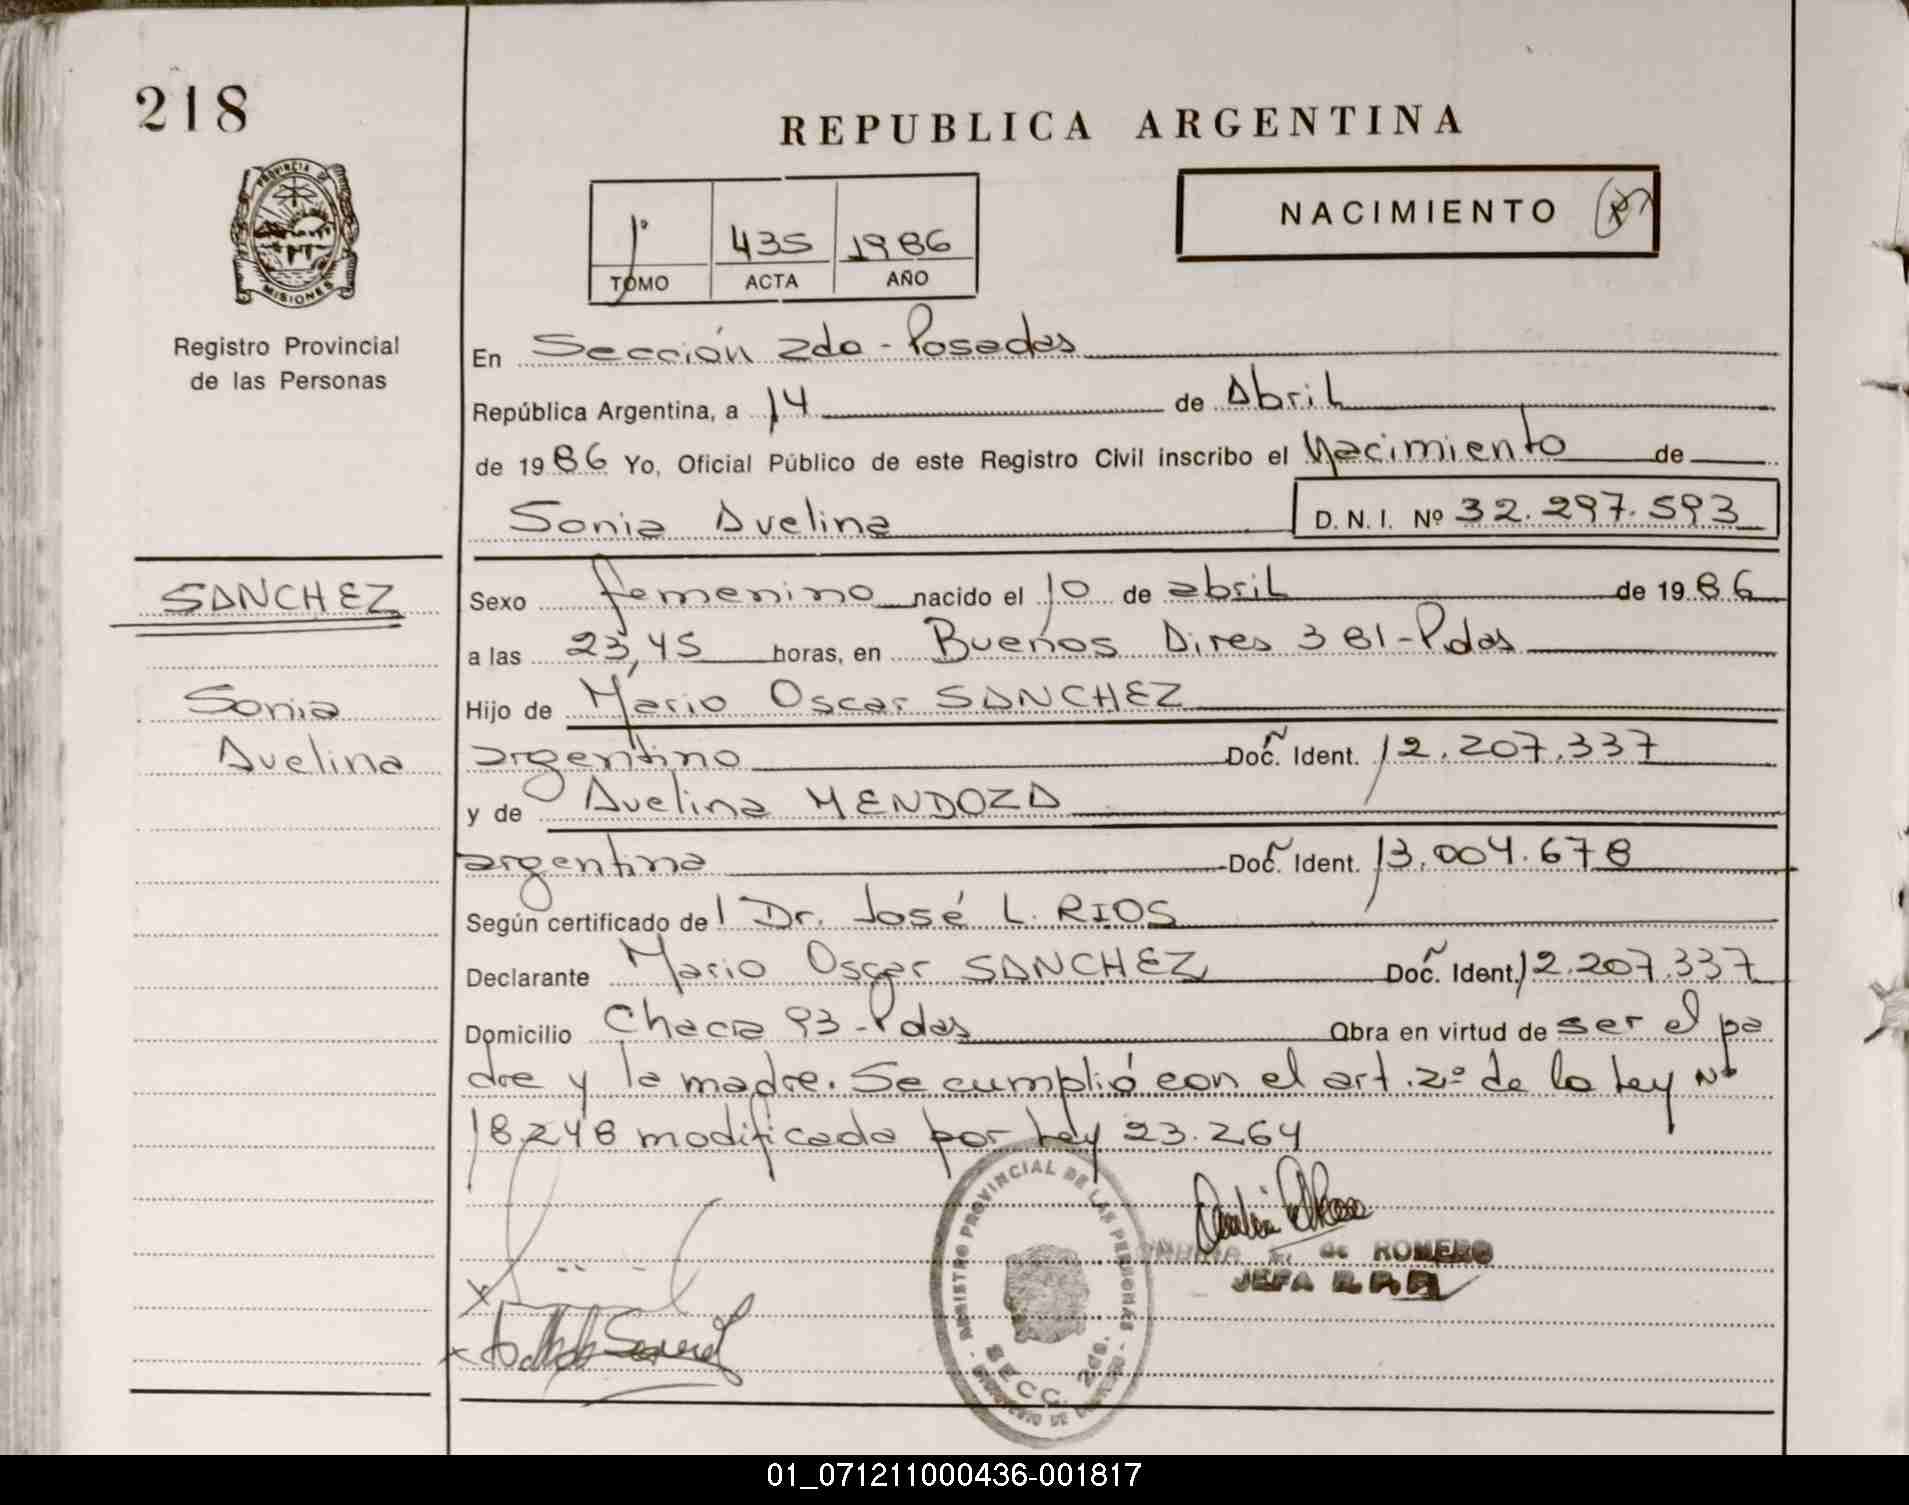 218
REPUBLICA ARGENTINA
PROVINCIA DE
MISIONES
Registro Provincial
de las Personas
1º 435 1986
TOMO ACTA AÑO
NACIMIENTO
En Sección 2da - Posadas
República Argentina, a 14 de Abril
de 1986 Yo, Oficial Público de este Registro Civil inscribo el Nacimiento de
Sonia Avelina D. N. I. Nº 32.297.593
SANCHEZ
Sonia
Avelina
Sexo femenino nacido el 10 de abril de 1986
a las 23,45 horas, en Buenos Aires 381-Pdas
Hijo de Mario Oscar SANCHEZ
argentino Doc. Ident. 12.207.337
y de Avelina MENDOZA
argentina Doc. Ident. 13.004.678
Según certificado de l Dr. José L. RIOS
Declarante Mario Oscar SANCHEZ Doc. Ident. 12.207.337
Domicilio Chacra 93-Pdas Obra en virtud de ser el pa
dre y la madre. Se cumplió con el art. 2º de la Ley Nº
18.248 modificada por Ley 23.264
REGISTRO PROVINCIAL DE LAS PERSONAS
SECC. 2da.
de ROMERO
JEFA R.P.P.
01_071211000436-001817